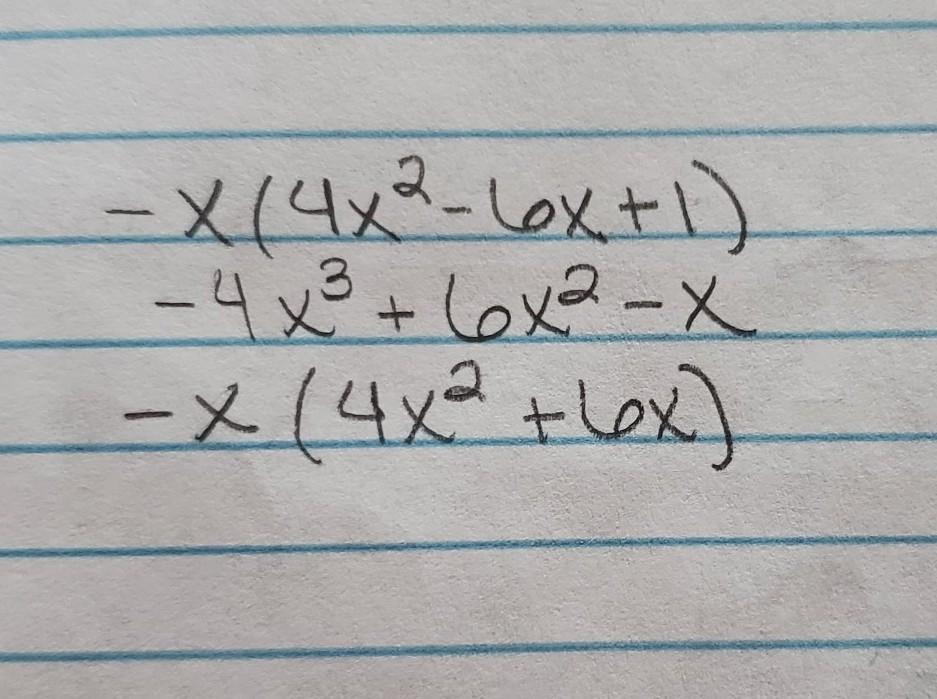 -x(4x²-6x+1)
-4x³+6x²-x
-x(4x²+6x)